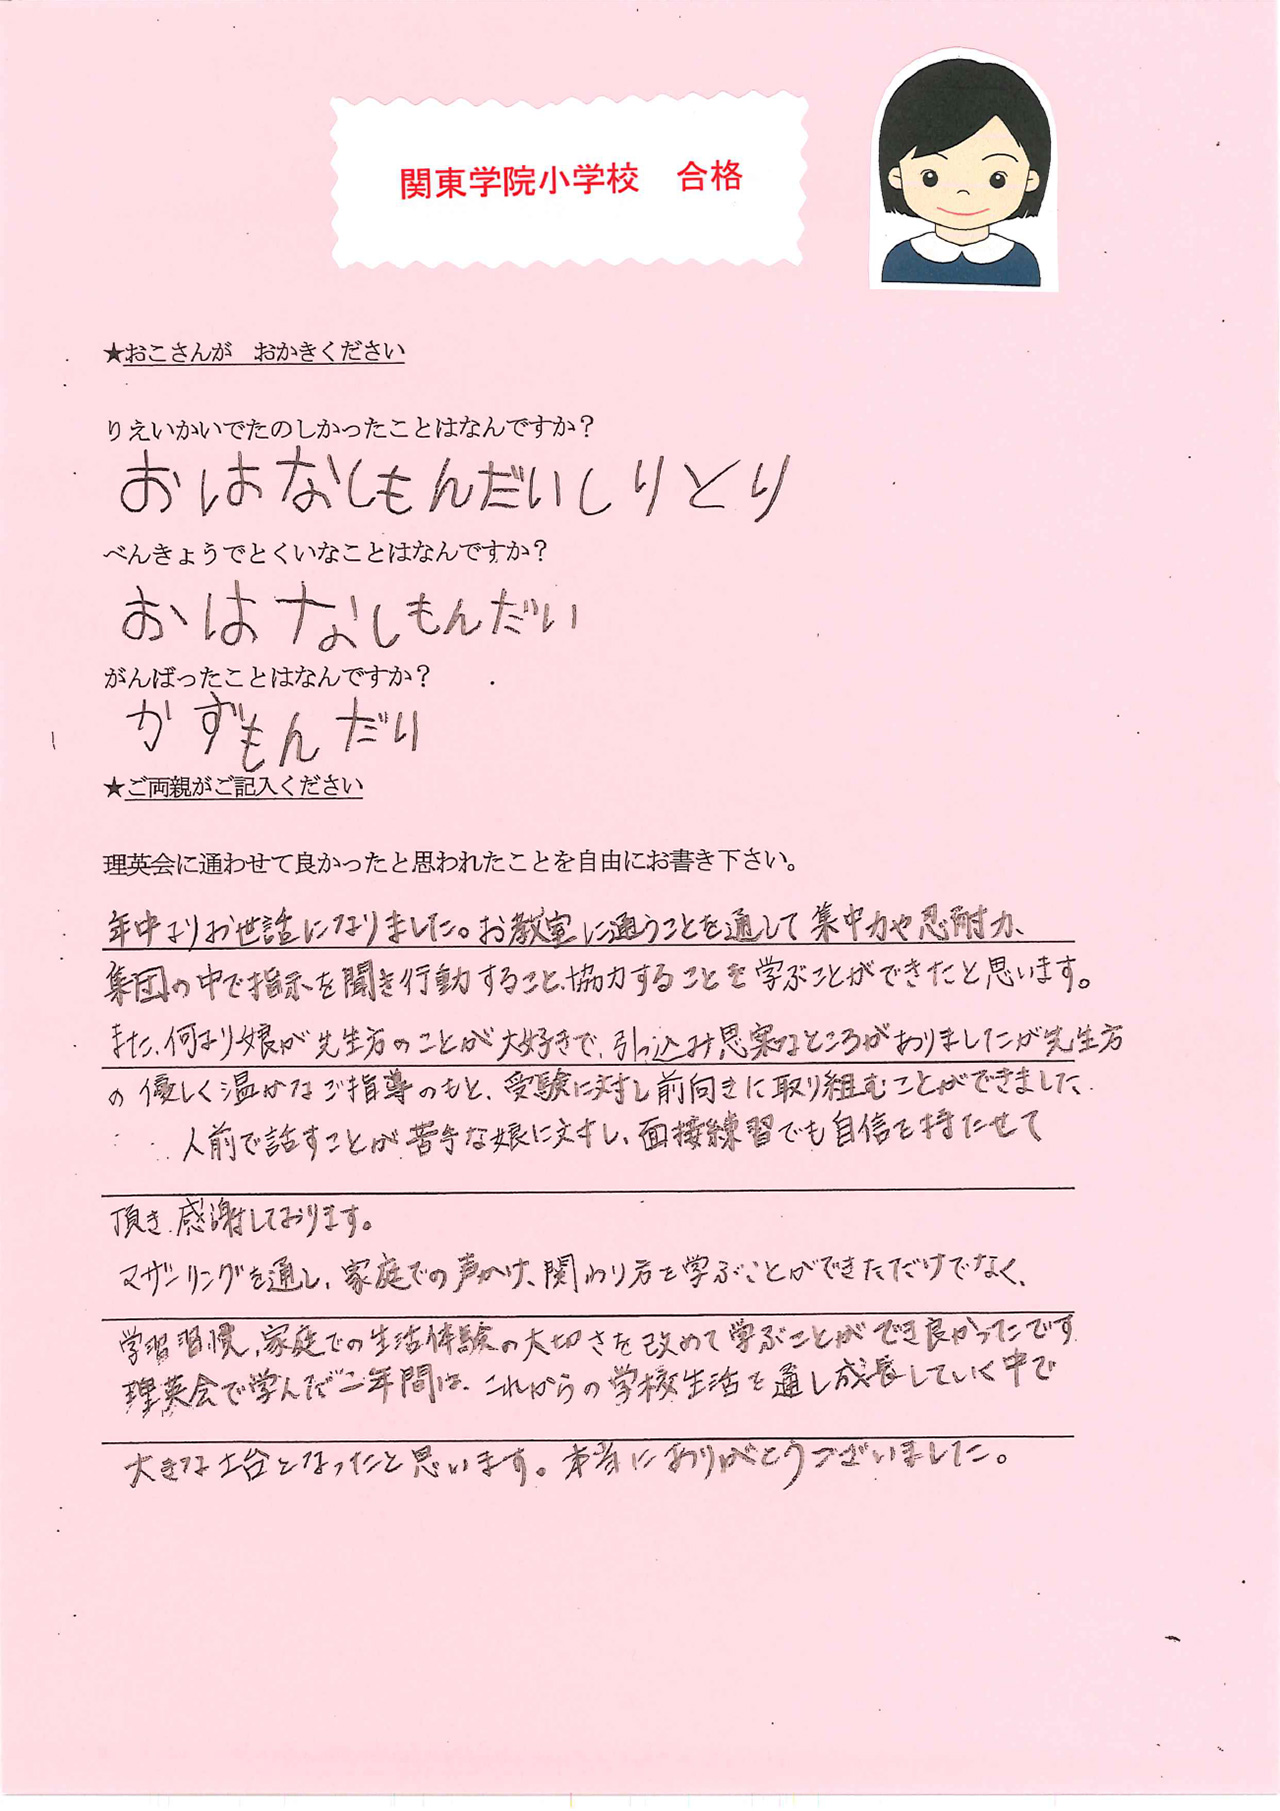 関東学院小学校　合格
★おこさんが　おかきください
りえいかいでたのしかったことはなんですか？
おはなしもんだいしりとり
べんきょうでとくいなことはなんですか？
おはなしもんだい
がんばったことはなんですか？
かずもんだい
★ご両親がご記入ください
理英会に通わせて良かったと思われたことを自由にお書き下さい。
年中よりお世話になりました。お教室に通うことを通して集中力や忍耐力、
集団の中で指示を聞き行動すること、協力することを学ぶことができたと思います。
また、何より娘が先生方のことが大好きで、引っ込み思案なところがありましたが先生方
の優しく温かなご指導のもと、受験に対し前向きに取り組むことができました、
人前で話すことが苦手な娘に対し、面接練習でも自信を持たせて
頂き、感謝しております。
マザーリングを通し、家庭での声かけ、関わり方を学ぶことができただけでなく、
学習習慣、家庭での生活体験の大切さを改めて学ぶことができ良かったです
理英会で学んだ二年間は、これからの学校生活を通し成長していく中で
大きな土台となったと思います。本当にありがとうございました。